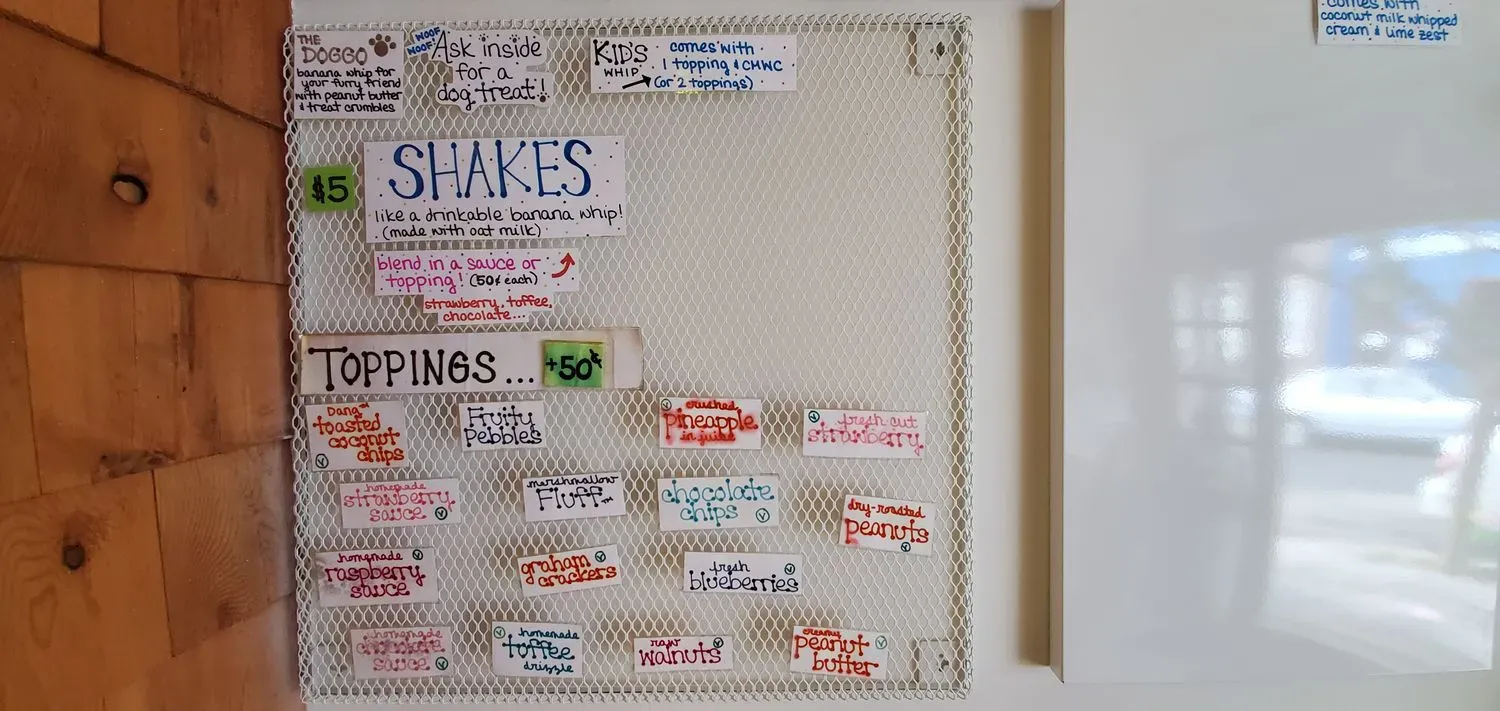 THE
DOGGO
banana whip for
your furry friend
with peanut butter
& treat crumbles
WOOF
WOOF
Ask inside
for a
dog treat!
KID'S
WHIP
comes with
1 topping & CHWC
(or 2 toppings)
comes with
coconut milk whipped
cream & lime zest
$5
SHAKES
like a drinkable banana whip!
(made with oat milk)
blend in a sauce or
topping! (50¢ each)
strawberry, toffee,
chocolate...
TOPPINGS... +50¢
Dang™
toasted
coconut
chips
V
Fruity
Pebbles
V
crushed
pineapple
in juice
V
fresh cut
strawberry
homemade
strawberry
sauce V
marshmallow
Fluff™
chocolate
chips V
dry-roasted
peanuts
V
homemade V
raspberry
sauce
graham V
crackers
fresh V
blueberries
homemade
chocolate
sauce V
V homemade
toffee
drizzle
raw V
walnuts
creamy V
peanut
butter